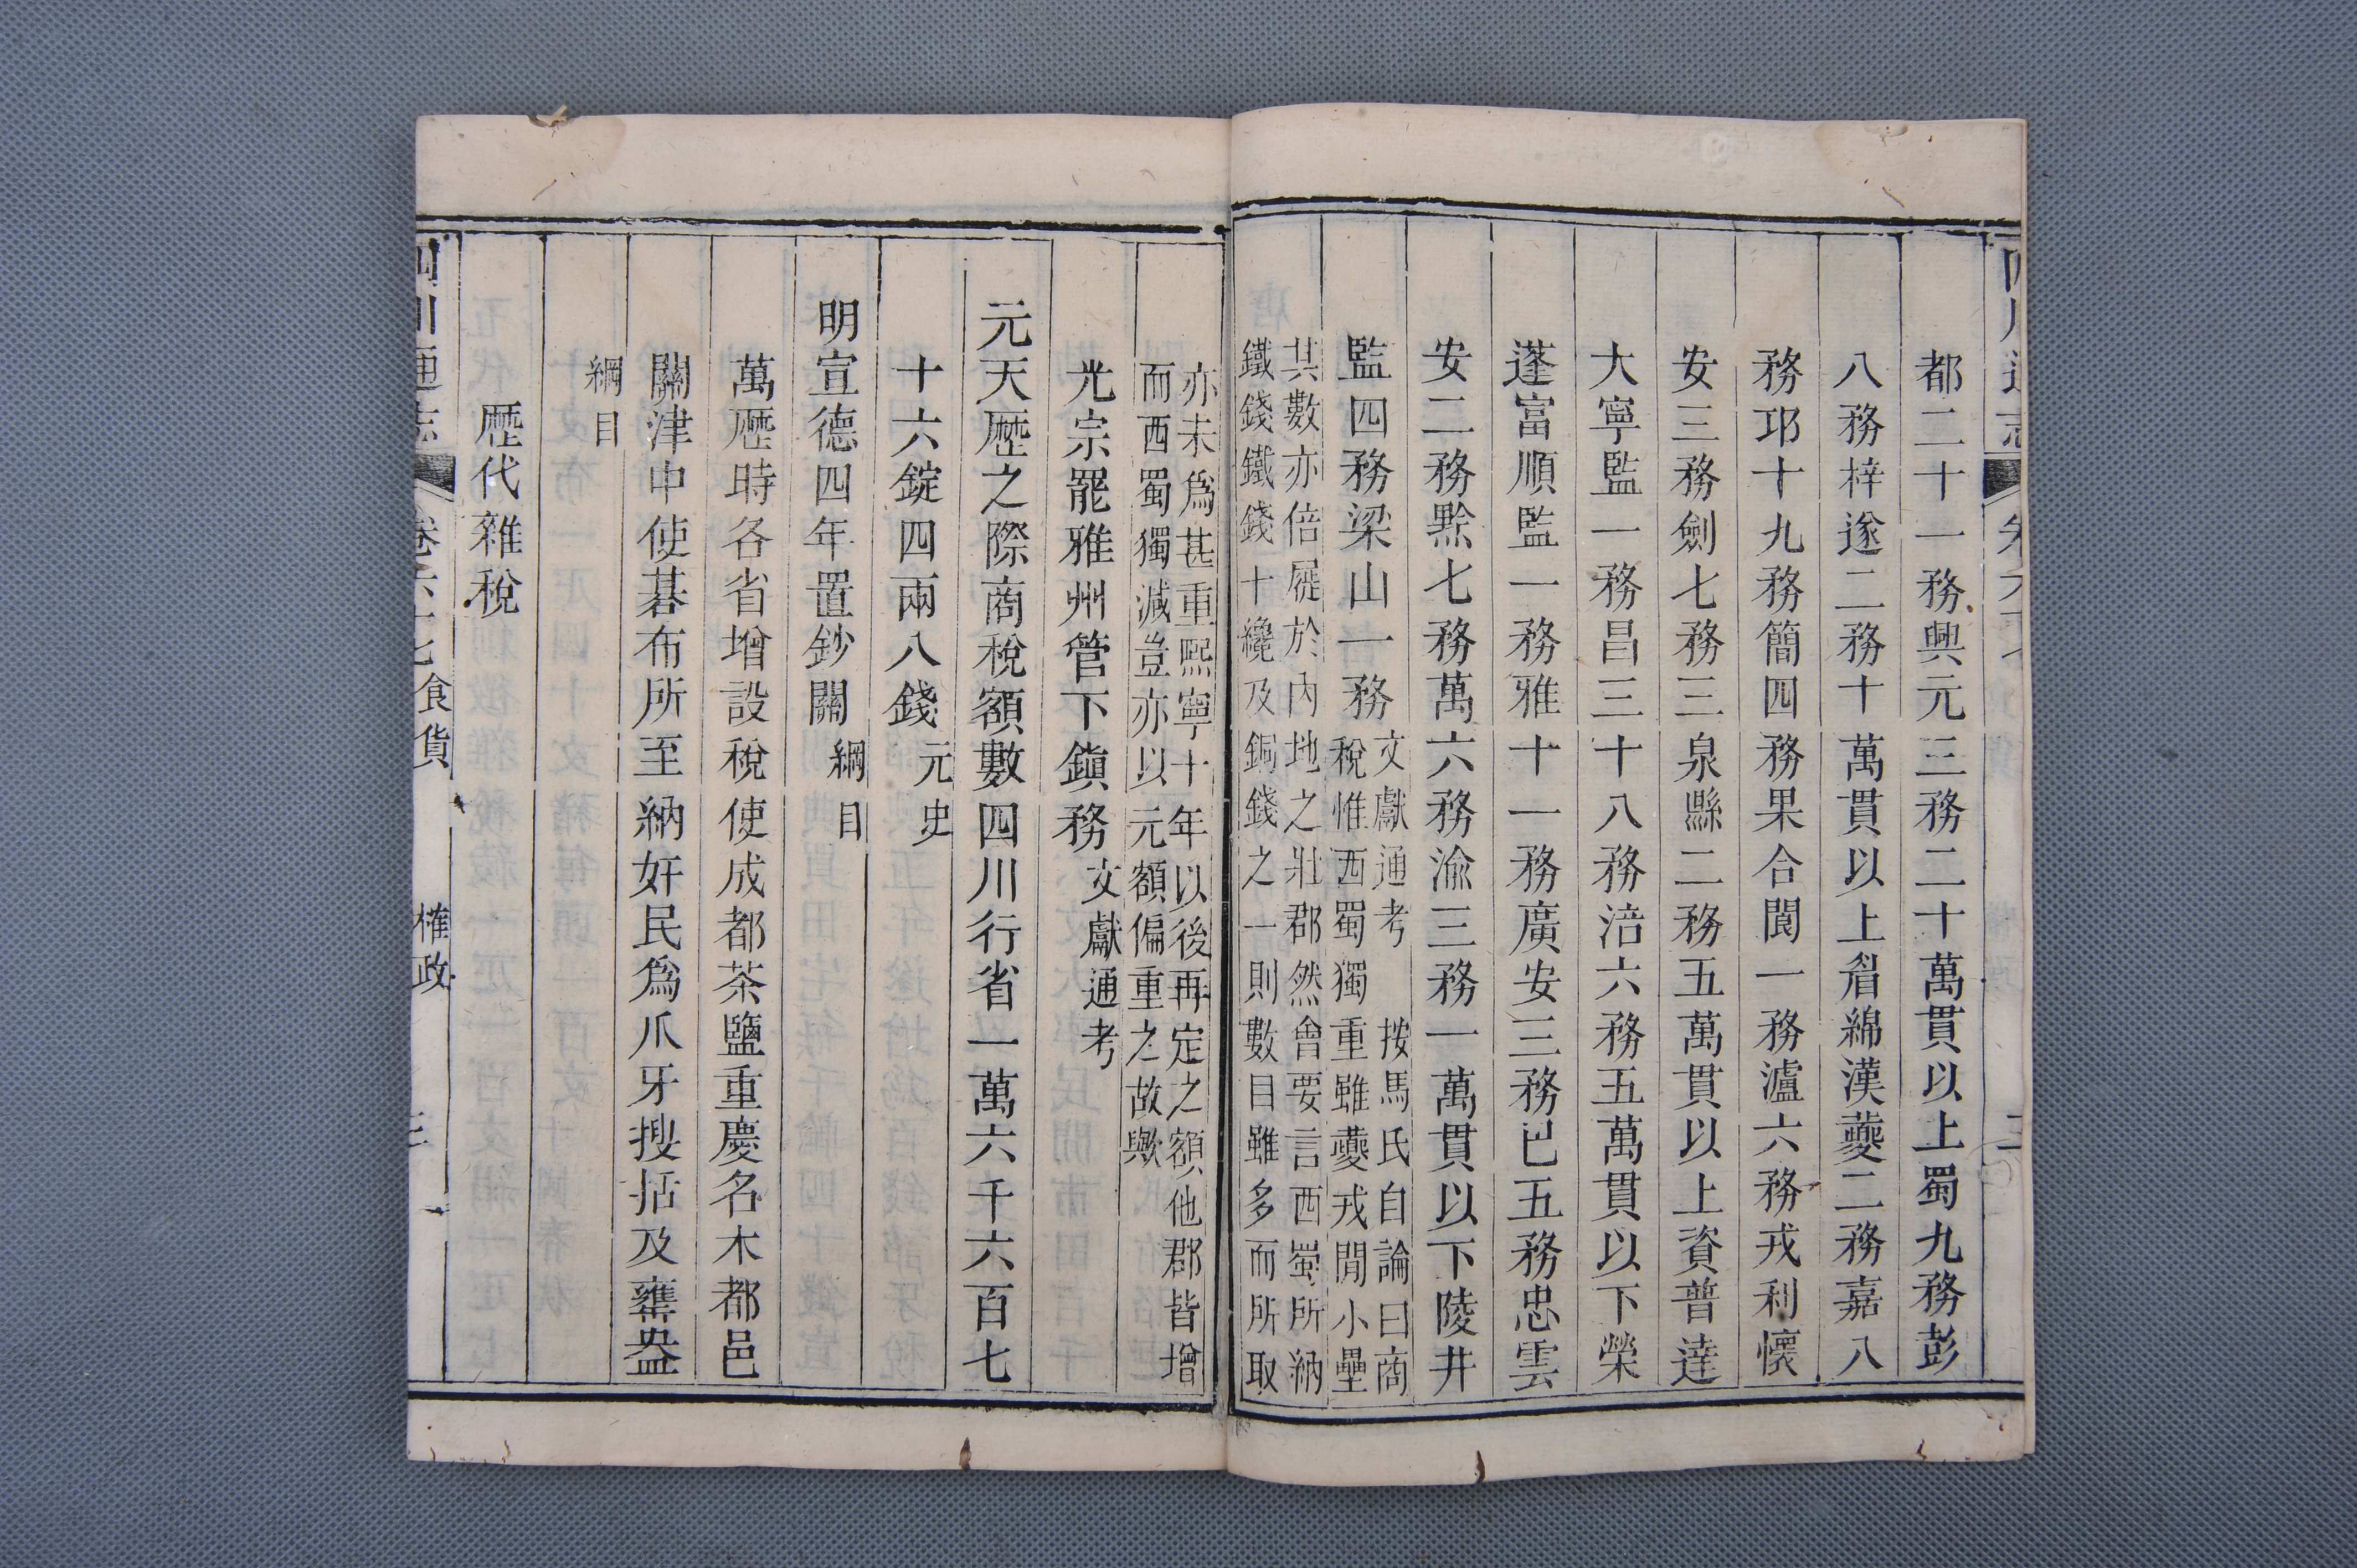 都二十一務興元三務二十萬貫以上蜀九務彭
八務梓遂二務十萬貫以上眉綿漢夔二務嘉八
務邛十九務簡四務果合閬一務瀘六務戎利懷
安三務劍七務三泉縣二務五萬貫以上資普達
大寧監一務昌三十八務涪六務五萬貫以下榮
蓬富順監一務雅十一務廣安三務巴五務忠雲
安二務黔七務萬六務渝三務一萬貫以下陵井
監四務梁山一務
文獻通考 按馬氏自論曰商
稅惟西蜀獨重雖夔戎閒小壘
其數亦倍屣於內地之壯郡然會要言西蜀所納
鐵錢鐵錢十纔及銅錢之一則數目雖多而所取
亦未爲甚重熙寧十年以後再定之額他郡皆增
而西蜀獨減豈亦以元額偏重之故歟
光宗罷雅州管下鎮務文獻通考
元天歷之際商稅額數四川行省一萬六千六百七
十六錠四兩八錢元史
明宣德四年置鈔關綱目
萬歷時各省增設稅使成都茶鹽重慶名木都邑
關津中使碁布所至納奸民爲爪牙搜括及虀盎
綱目
歷代雜稅
四川通志 卷六十七食貨 榷政 三